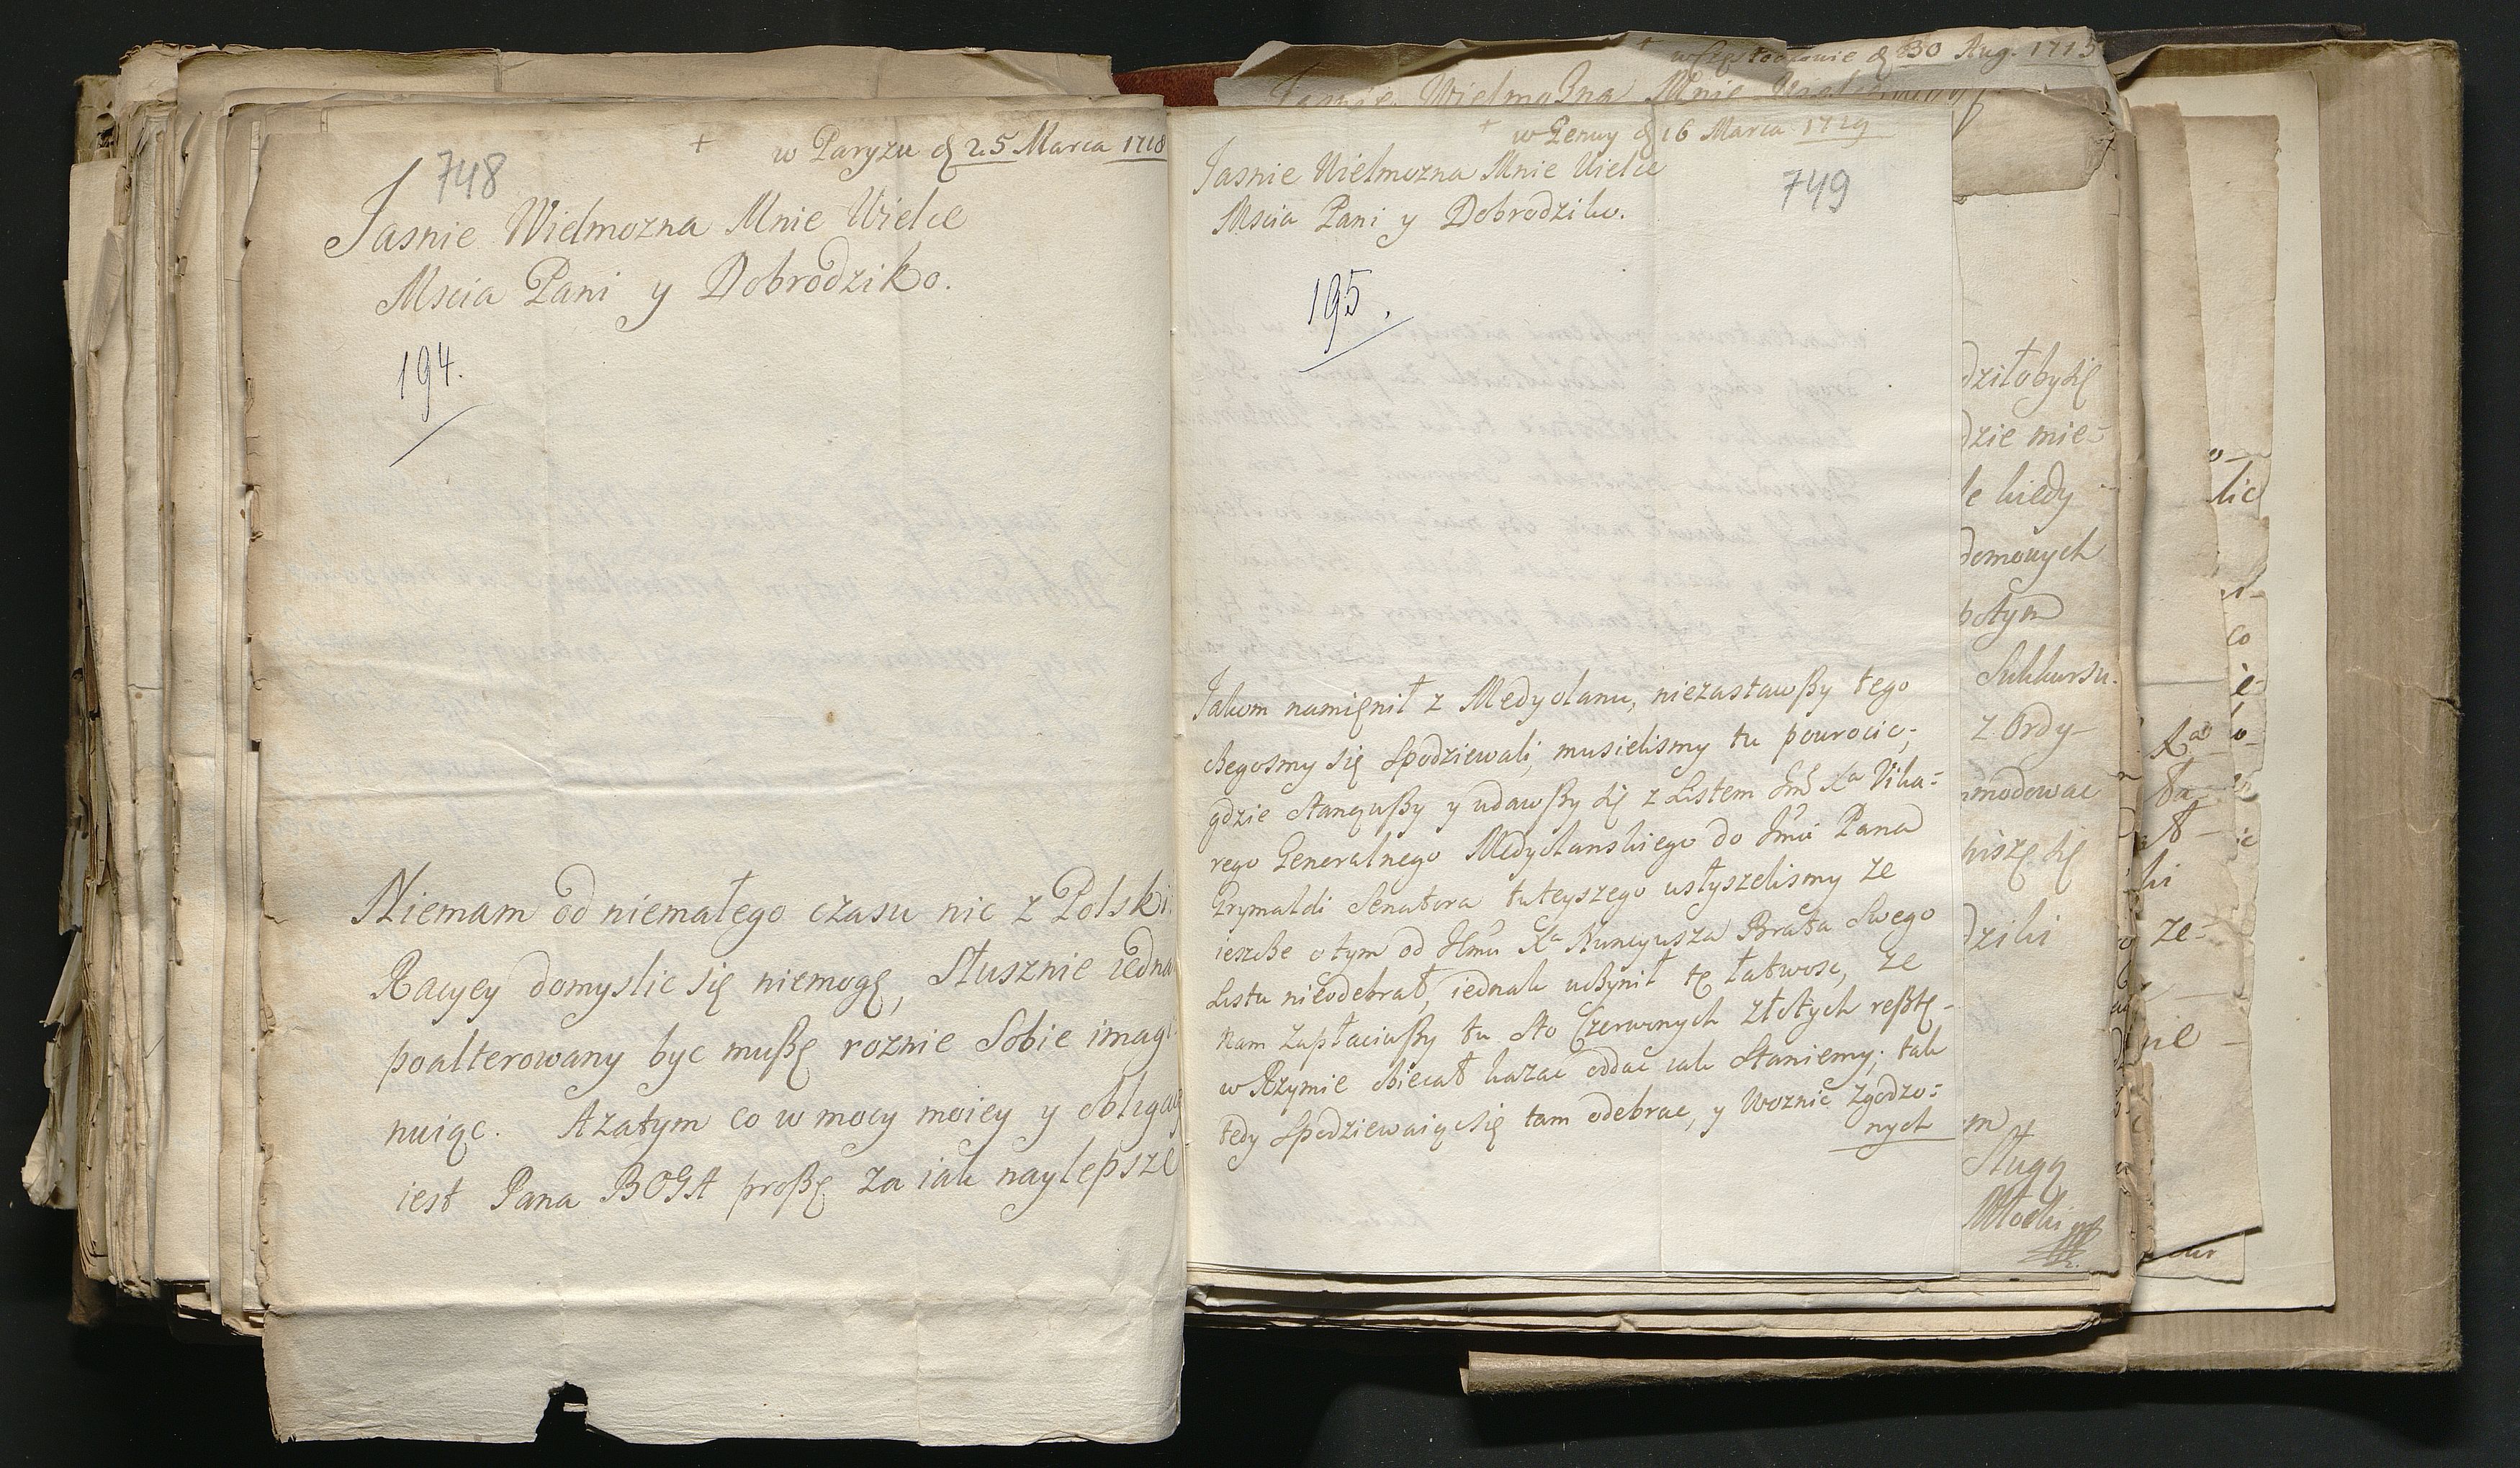 748
+ w Paryzu d 25 Marca 1718
Jasnie Wielmozna Mnie Wielce
Mscia Pani y Dobrodziko.
194.
Niemam od niemałego czasu nic z Polski
Racyey domyslic się niemogę, Słusznie iedna
poalterowany byc mußę roznie Sobie imagi
nuiąc. Azatym co w mocy moiey y obligacy
iest Pana BOGA proßę za iak naylepsze
30 Aug. 1715
Jasnie Wielmozna Mnie
+ w Genuy d 16 Marca 1719
749
Jasnie Wielmozna Mnie Wielce
Mscia Pani y Dobrodziko.
195.
Jakom namięnił z Medyolanu, niezastawßy tego
czegosmy się Spodziewali, musielismy tu powrocic;
gdzie Stanąwßy y udawßy się z Listem Jmś Xa Vika=
rego Generalnego Medyolanskiego do Jmci Pana
Grymaldi Senatora tuteyszego usłyszelismy ze
ieszcze o tym od Jmci Xa Nuncyusza Brata Swego
Listu nieodebrał, iednak uczynił tę łatwosc, ze
nam zapłaciwßy tu Sto Czerwonych złotych reßtę-
w Rzymie obiecał kazac oddac iak Staniemy; tak
tedy Spodziewaią się tam odebrac, y Woznic zgodzo=
nych
działoby się
dzie mie=
le kiedy
domowych
potym
Sukkursu.
z Ordy-
modowac
piszę się
dzili
m
Sługą
Młocki
lic
co
Xa
ki
ze=
nie